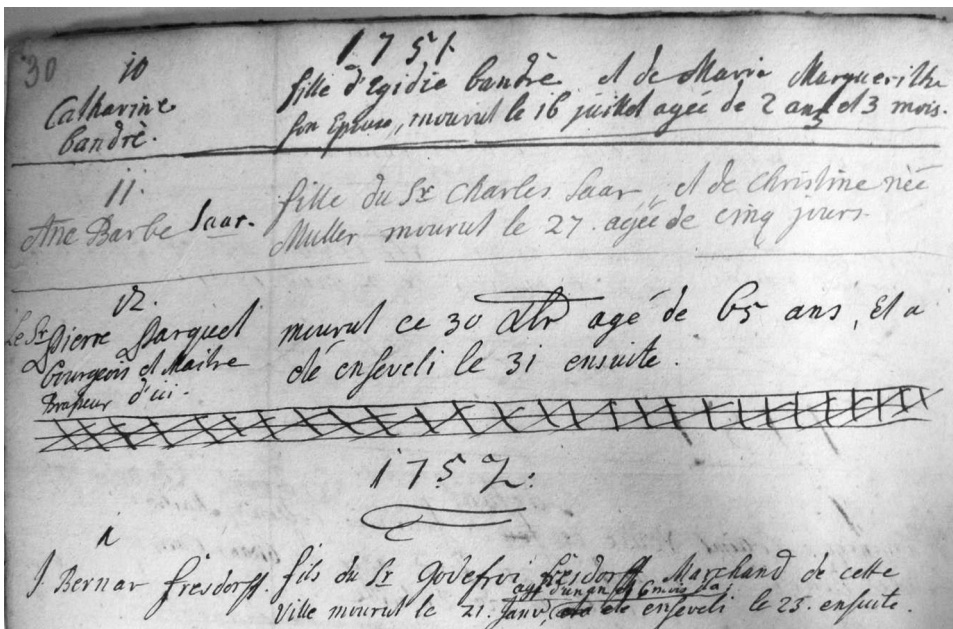 30
1751.
10
Catharine
bandrè.
fille d'Egidie bandrè et de Maria Margueritke
son Epouse,, mourut le 16 juillet agée de 2 ans et 3 mois.
11.
Ane Barbe Saar.
fille du Sr. Charles Saar,, et de Christine née
Muller mourut le 27. agée de cinq jours.
12.
Le Sr. Pierre Parquet
bourgeois et Maitre
Brasseur d'ici.
mourut ce 30 Xbr agé de 65 ans, et a
été enseveli le 31 ensuite.
1752.
1
J Bernar fresdorff.
fils du Sr godefroi fresdorff Marchand de cette
agé d'un an et 6 mois
Ville mourut le 21. Janv, été enseveli le 23. ensuite.